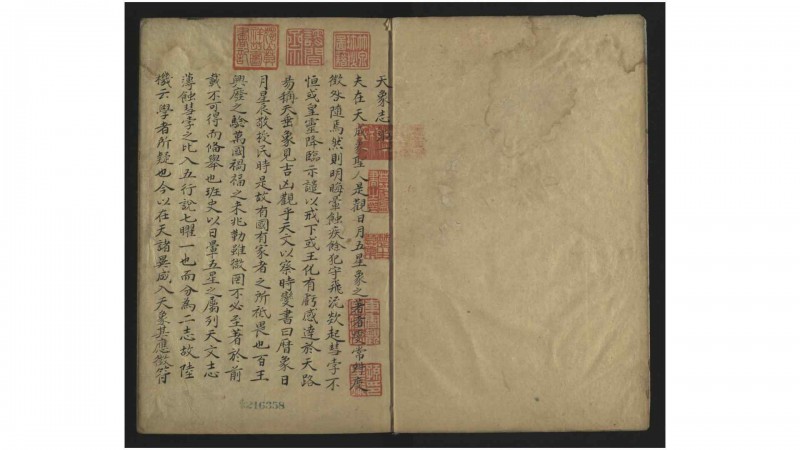 天象志
夫在天成象聖人是觀日月五星象之著者變常舛度
徵咎隨焉然則明晦暈蝕疾餘犯守飛流欻起彗孛不
恒或皇靈降臨示譴以戒下或王化有虧感達於天路
易稱天垂象見吉凶觀乎天文以察時變書曰曆象日
月星辰敬授民時是故有國有家者之所祗畏也百王
興廢之驗萬國禍福之未兆勒雖微罔不必至著於前
載不可得而備舉也班史以日暈五星之屬列天文志
薄蝕彗孛之比入五行說七曜一也而分為二志故陸
機云學者所疑也今以在天諸異咸入天象其應徵符
216358